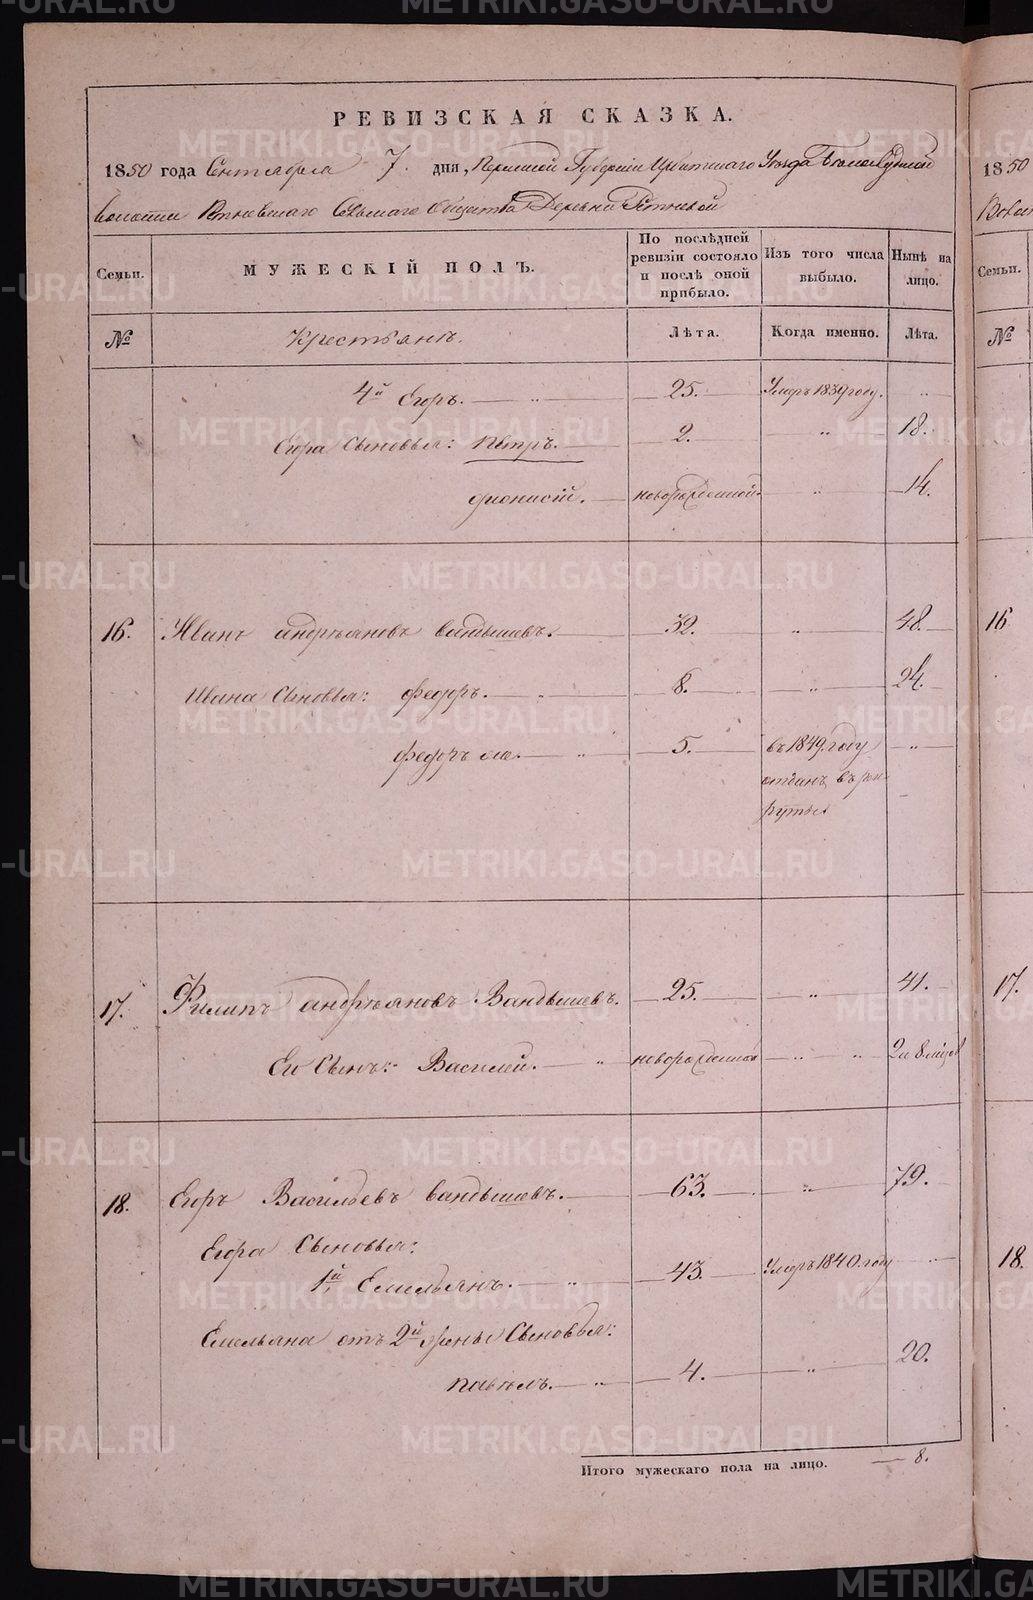 РЕВИЗСКАЯ СКАЗКА.
1850 года Сентября 7. дня, Пермской Губернии Ирбитскаго Уезда
волости Сельскаго Общества Деревни
Семьи. МУЖЕСКІЙ ПОЛЪ. По послѣдней ревизіи состояло и послѣ оной прибыло. Изъ того числа выбыло. Нынѣ на лицо.
№ Крестьянъ. Лѣта. Когда именно. Лѣта.
4й Егоръ. 25. Умеръ 1839 году.
Егора Сыновья: Петръ. 2. 18.
дионисій. новорожденной. 14.
16. Иванъ андрѣяновъ вандышевъ. 32. 48.
Ивана Сыновья: федоръ. 8. 24.
федоръ же. 5. въ 1849. году
отданъ въ рек-
руты
17. Филипъ андрѣяновъ Вандышевъ. 25. 41.
Его Сынъ: Василей. новорожденной 2 и 8 месяцов
18. Егоръ Васильевъ вандышевъ. 63. 79.
Егора Сыновья:
1й Емельянъ. 43. Умеръ 1840. году
Емельяна отъ 2й жены Сыновья:
павелъ. 4. 20.
Итого мужескаго пола на лицо. 8.
1850
Семьи.
№
16
17.
18.
METRIKI.GASO-URAL.RU